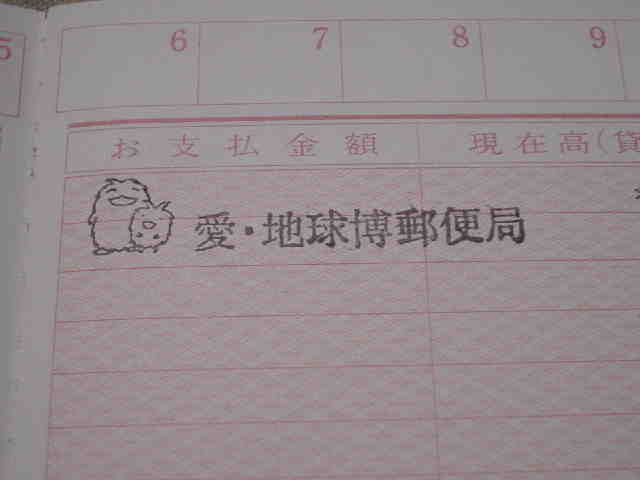 5 6 7 8 9
お支払金額 現在高(貸
愛・地球博郵便局